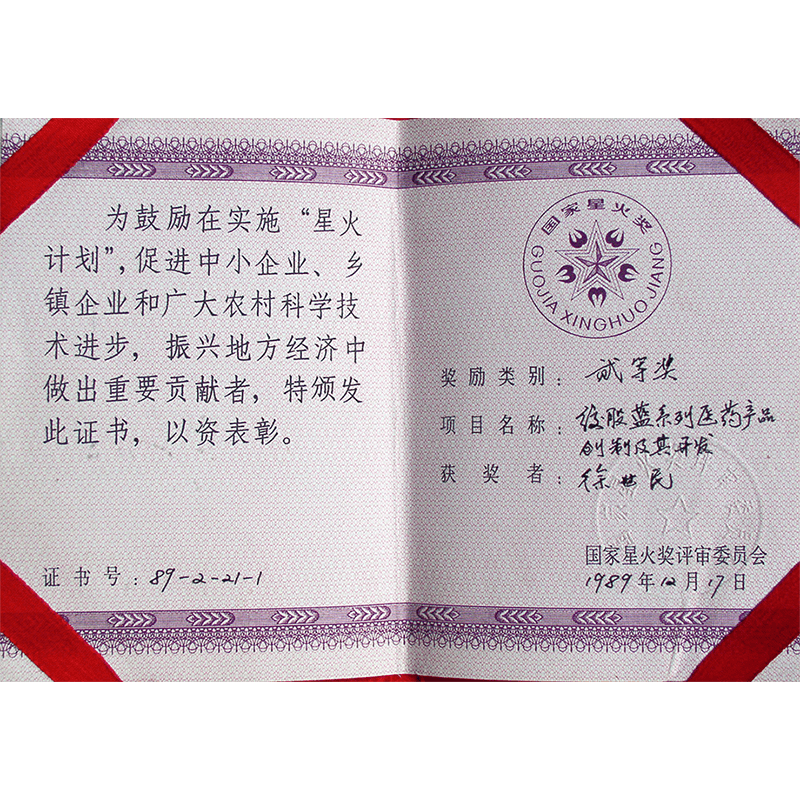 为鼓励在实施“星火
计划”,促进中小企业、乡
镇企业和广大农村科学技
术进步，振兴地方经济中
做出重要贡献者，特颁发
此证书，以资表彰。
证书号：89-2-21-1
国家星火奖
GUOJIA XINGHUO JIANG
奖励类别：贰等奖
项目名称：绞股蓝系列医药产品
创制及其开发
获奖者：徐世民
国家星火奖评审委员会
1989年12月17日